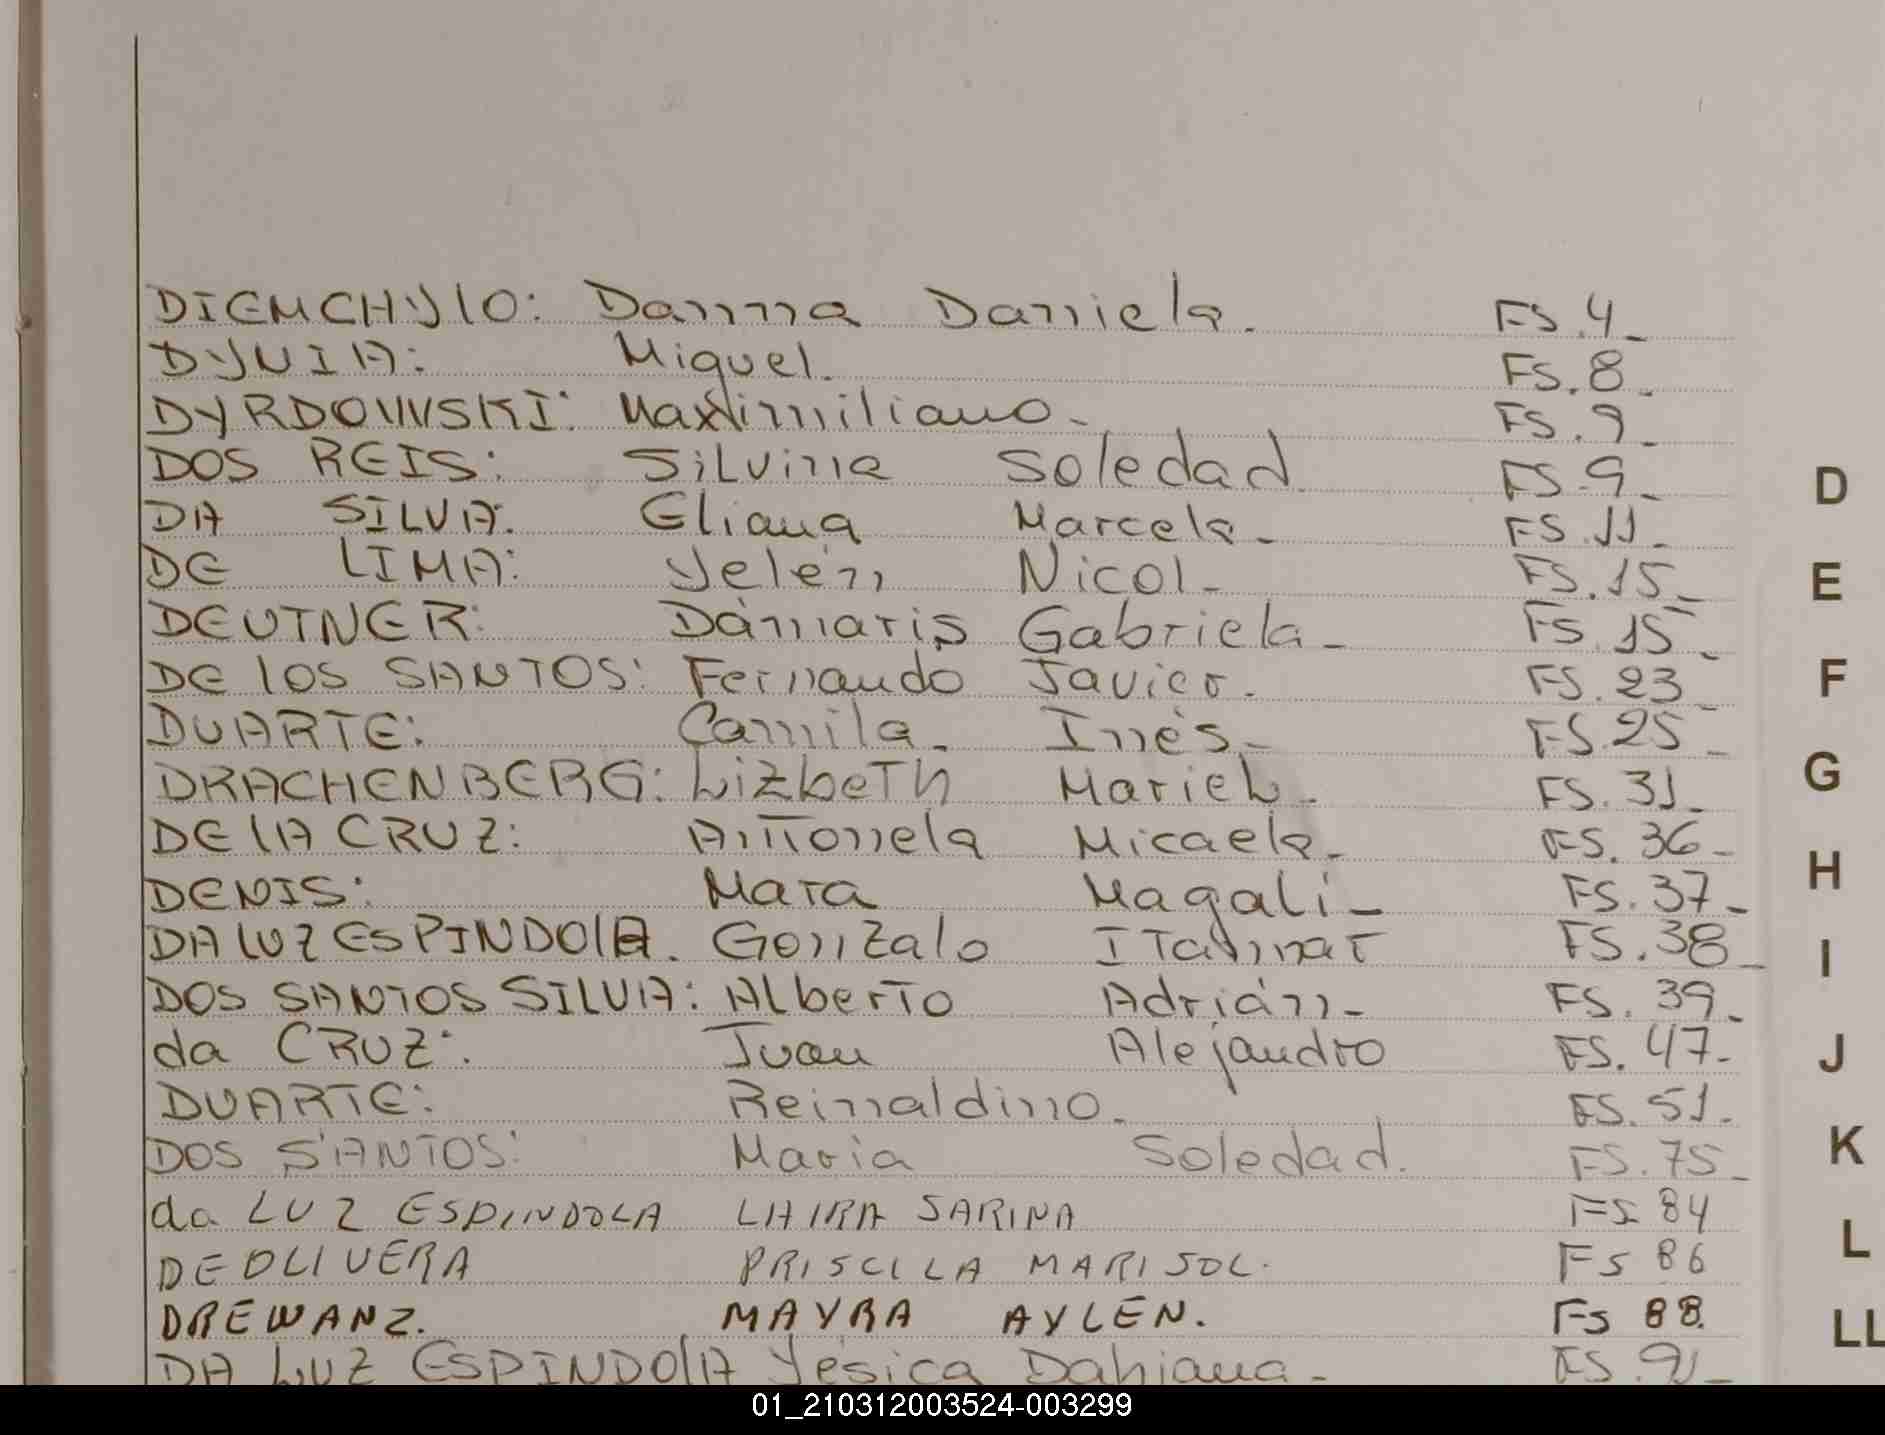 DIEMCHYLO: Danna Daniela. FS.4_
DYNIA: Miguel. FS.8_
DYRDOWSKI: Maximiliano_ FS.9_
DOS REIS: Silvina Soledad. FS.9_
DA SILVA: Eliana Marcela_ FS.11_
DE LIMA: Yelén Nicol_ FS.15_
DEUTNER: Dámaris Gabriela_ FS.15_
DE LOS SANTOS: Fernando Javier. FS.23_
DUARTE: Camila. Inés_ FS.25_
DRACHENBERG: Lizbeth Mariel. FS.31_
DE LA CRUZ: Antonela Micaela_ FS.36_
DENIS: Mara Magali_ FS.37_
DA LUZ ESPINDOLA. Gonzalo FS.38_
DOS SANTOS SILVA: Alberto Adrián_ FS.39_
da CRUZ: Juan Alejandro FS.47_
DUARTE: Reinaldino_ FS.51_
DOS SANTOS: Maria Soledad. FS.75_
da LUZ ESPINDOLA LAIRA SARINA FS 84
DE OLIVERA PRISCILA MARISOL. FS 86
DREWANZ. MAYRA AYLEN. FS 88.
DA LUZ ESPINDOLA Yésica Dahiana_ FS.91_
D
E
F
G
H
I
J
K
L
LL
01_210312003524-003299